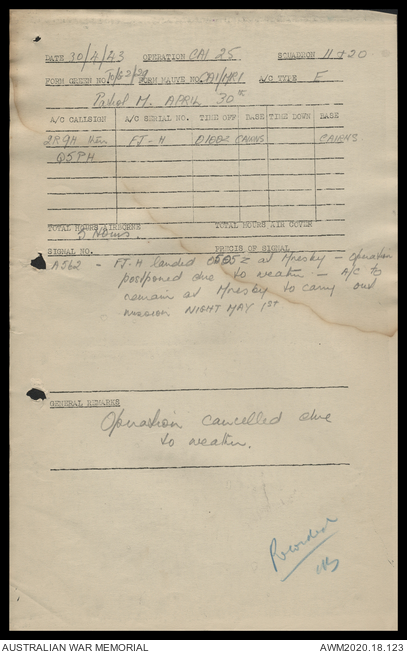 DATE 30/4/43 OPERATION CAI 25 SQUADRON 11 + 20
FORM GREEN NO. FORM MAUVE NO. A/C TYPE F
Patrol M. APRIL 30th
A/C CALLSIGN A/C SERIAL NO. TIME OFF BASE TIME DOWN BASE
2R9H FJ-H 0100Z CAIRNS CAIRNS
Q5PH
TOTAL HOURS AIRBORNE TOTAL HOURS AIR COVER
5 Hours.
SIGNAL NO. PRECIS OF SIGNAL
A562 - FJ.H landed 0605Z at Moresby - operation
postponed due to weather - A/C to
remain at Moresby to carry out
mission NIGHT MAY 1ST
GENERAL REMARKS
Operation cancelled due
to weather.
Recorded
AUSTRALIAN WAR MEMORIAL AWM2020.18.123